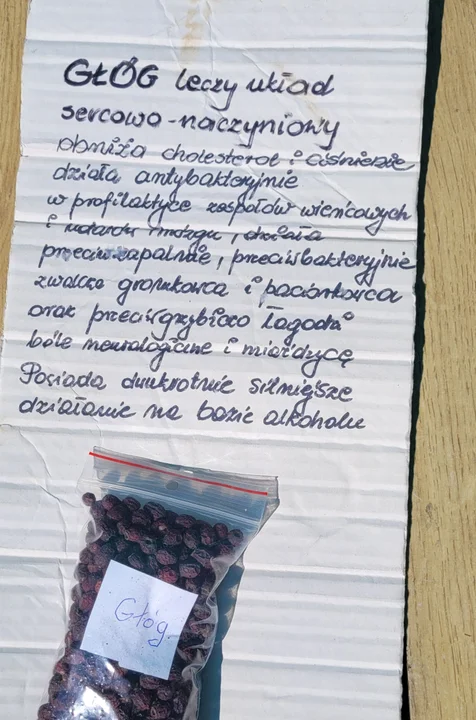 GŁÓG leczy układ
sercowo-naczyniowy
obniża cholesterol i ciśnienie
działa antybakteryjnie
w profilaktyce zespołów wieńcowych
i udarów mózgu, działa
przeciwzapalnie, przeciwbakteryjnie
zwalcza gronkowca i paciorkowca
oraz przeciwgrzybiczo Łagodzi
bóle neurologiczne i miażdżycę
Posiada dwukrotnie silniejsze
działanie na bazie alkoholu
Głóg